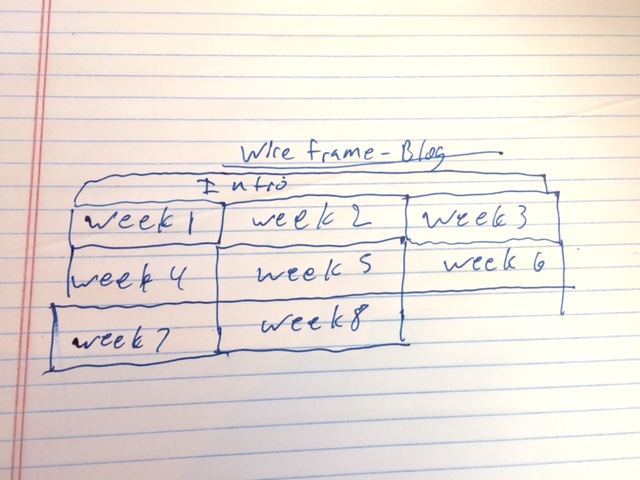 Wire frame - Blog
Intro
week 1 week 2 week 3
week 4 week 5 week 6
week 7 week 8